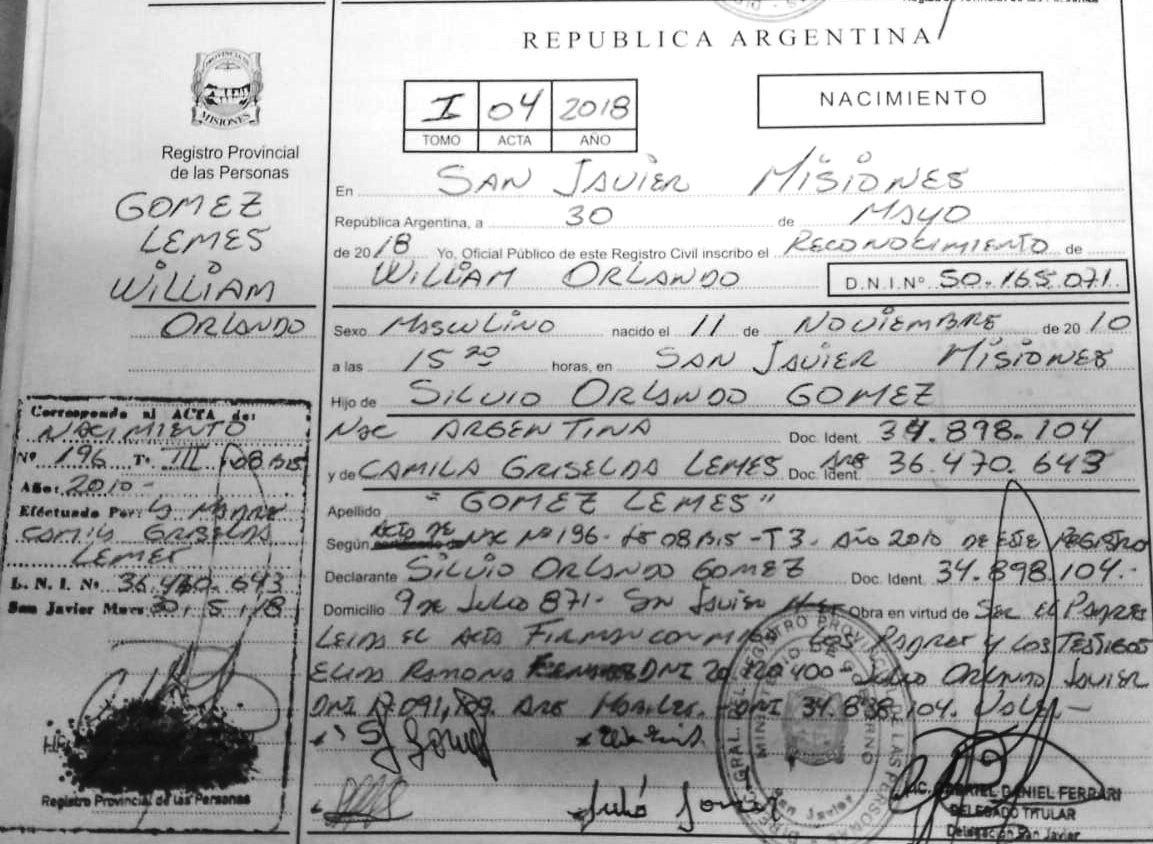 REPUBLICA ARGENTINA
PROVINCIA DE
MISIONES
Registro Provincial
de las Personas
GOMEZ
LEMES
WILLIAM
ORLANDO
I 04 2018
TOMO ACTA AÑO
NACIMIENTO
En SAN JAVIER MISIONES
República Argentina, a 30 de MAYO
de 2018 Yo, Oficial Público de este Registro Civil inscribo el RECONOCIMIENTO de
WILLIAM ORLANDO D.N.I.Nº 50.165.071
Sexo MASCULINO nacido el 11 de NOVIEMBRE de 2010
a las 15 20 horas, en SAN JAVIER MISIONES
Hijo de SILVIO ORLANDO GOMEZ
NAC ARGENTINA Doc. Ident. 34.898.104
y de CAMILA GRISELDA LEMES Doc. Ident. 36.470.643
Apellido "GOMEZ LEMES"
Según ACTA DE NAC Nº 196 - Fº 08 BIS - T 3 - AÑO 2010 DE ESTE REGISTRO
Declarante SILVIO ORLANDO GOMEZ Doc. Ident. 34.898.104.-
Domicilio 9 DE JULIO 871 - SAN JAVIER Obra en virtud de SER EL PADRE
LEIDA EL ACTA FIRMAN CONMIGO LOS PADRES Y LOS TESTIGOS
ELIDA RAMONA DNI ORLANDO JAVIER
DNI 34.898.104. VALE.-
Corresponde al ACTA de:
NACIMIENTO
Nº 196 Tº III F 08 BIS
Año: 2010 -
Efectuado Por: LA MADRE
CAMILA GRISELDA
LEMES
D. N. I. Nº 36.470.643
San Javier Mnes 30/5/18
Registro Provincial de las Personas
San Javier
LIC. GABRIEL DANIEL FERRARI
DELEGADO TITULAR
Delegación San Javier